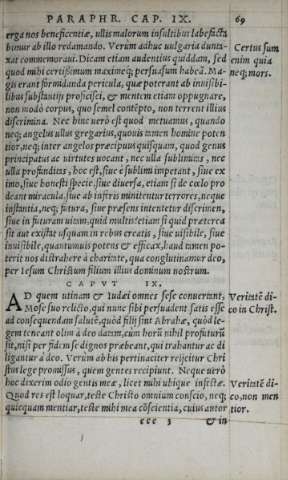 PARAPHR. CAP. IX. 69
erga nos beneficentiæ, ullis malorum insultibus labefacta
bimur ab illo redamando. Verùm adhuc vulgaria dunta-
xat commemoraui. Dicam etiam audentius quiddam, sed
quod mihi certissimum maximeq; persuasum habeā. Ma-
gis erant formidanda pericula, quæ poterant ab inuisibi-
libus substantijs proficisci, & mentem etiam oppugnare,
non modò corpus, quo semel contēpto, non terrent illius
discrimina. Nec hinc uerò est quod metuamus, quando
neq; angelus ullus gregarius, quouis tamen homine poten
tior, neq; inter angelos præcipuus quisquam, quod genus
principatus ac uirtutes uocant, nec ulla sublimitas, nec
ulla profunditas, hoc est, siue è sublimi impetant, siue ex
imo, siue honesti specie, siue diuersa, etiam si de cœlo pro
deant miracula, siue ab inferis minitentur terrores, neque
instantia, neq; futura, siue præsens intentetur discrimen,
siue in futuram uitam, quid multis? etiam si quid præterea
sit aut existat usquam in rebus creatis, siue uisibile, siue
inuisibile, quantumuis potens & efficax, haud tamen po-
terit nos distrahere à charitate, qua conglutinamur deo,
per Iesum Christum filium illius dominum nostrum.
CAPVT IX.
AD quem utinam & Iudæi omnes sese conuertant,
Mose suo relicto, qui nunc sibi persuadent satis esse
ad consequendam salutē, quòd filij sint Abrahæ, quòd le-
gem teneant olim à deo datam, cùm horū nihil profuturū
sit, nisi per fidem se dignos præbeant, qui trahantur ac di
ligantur à deo. Verùm ab his pertinaciter reijcitur Chri
stus lege promissus, quem gentes recipiunt. Neque uerò
hoc dixerim odio gentis meæ, licet mihi ubique infestæ.
Quod res est loquar, teste Christo omnium conscio, neq;
quicquam mentiar, teste mihi mea cōscientia, cuius autor
eee 3 & in
Certus sum
enim quia
neq; mors.
Veritatē di-
co in Christ.
Veritatē di-
co, non men
tior.